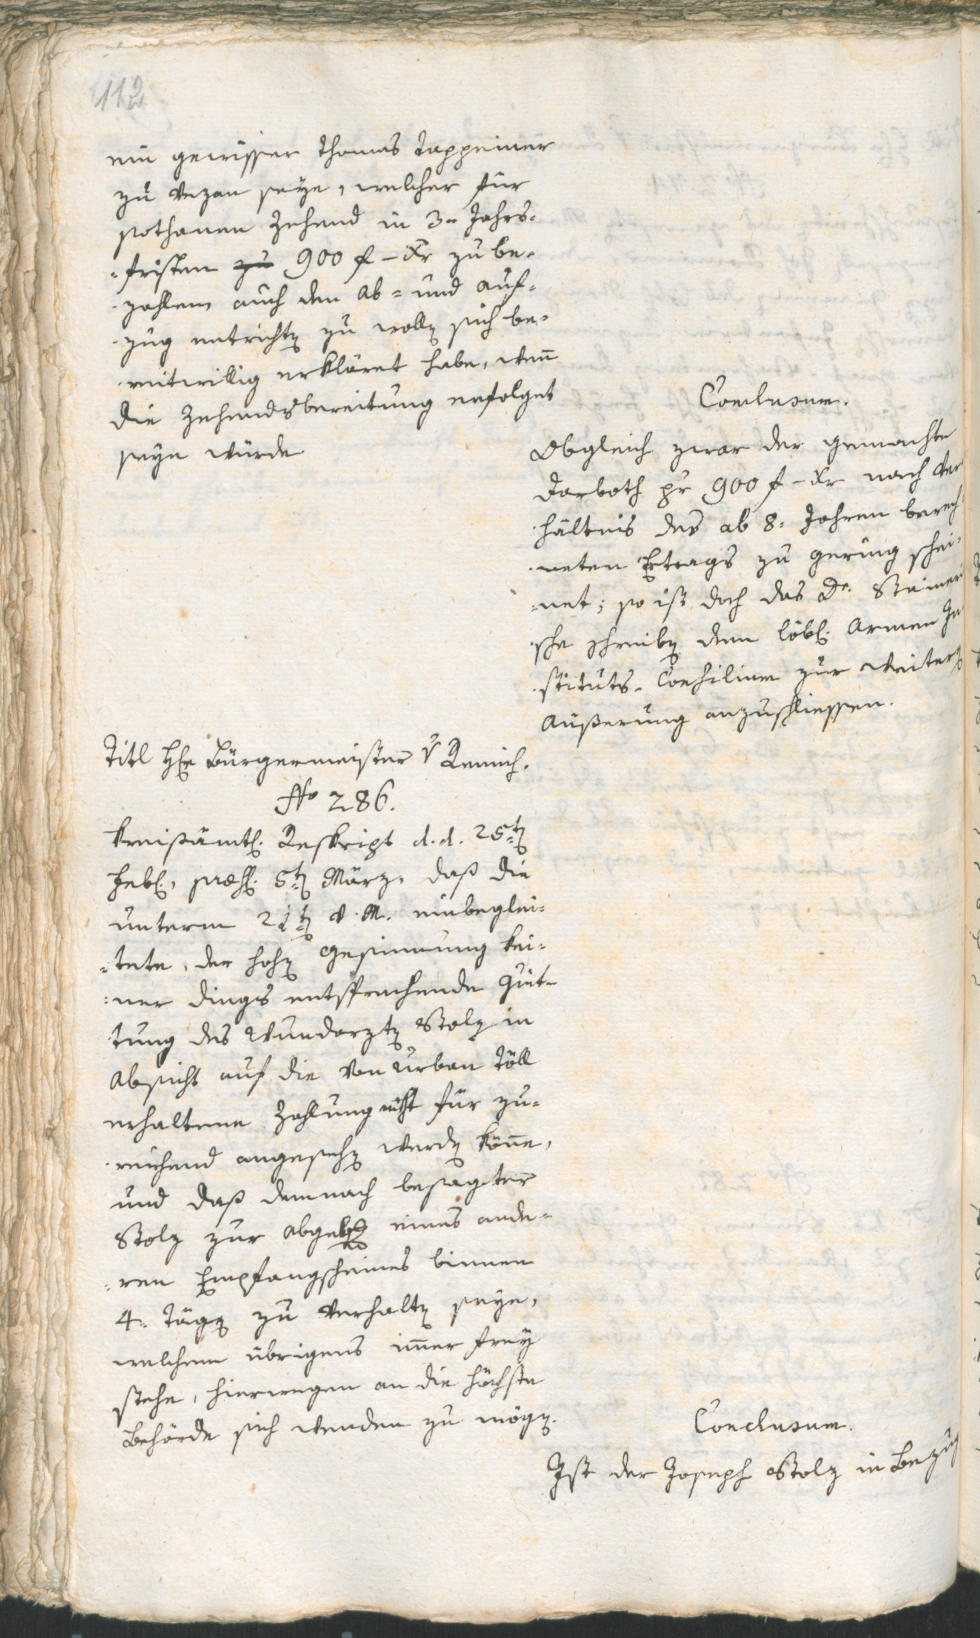 112
ein gewisser Thomas Tappeiner
zu Vezan seye, welcher für
sothanen Zehend in 3en Jahrs-
fristen zu 900 f – Xr zu be-
zahlen, auch den Ab- und Auf-
zug entrichten zu wollen sich be-
reitwillig erkläret habe, wenn
die Zehendsbereitung erfolget
seyn würde
Conclusum.
Obgleich zwar der gemachte
Darboth pr 900 f – Xr nach Ver
hältnis des ab 8. Jahren berech
neten Ertrags zu gering schei-
net; so ist doch das Dr. Stainer
sche Schreiben dem löbl. Armen In
stituts-Consilium zur weitern
Äußerung anzuschliessen.
Titl Hr Bürgermeister v Remich.
No 286.
Kreisämtl. Reskript d. d. 25ten
Feb., praes. 5ten März, daß die
unterm 21ten v. M. einbeglei-
tete, der hohen Gesinnung kei-
ner dings entsprechende Quit-
tung des Wundarzten Stolz in
Absicht auf die von Urban Töll
erhaltene Zahlung nicht für zu-
reichend angesehen werden könne,
und daß demnach besagter
Stolz zur Abgebung eines ande-
ren Empfangscheines binnen
4. Tägen zu verhalten seye,
welchem übrigens imer frey
stehe, hierwegen an die höchste
Behörde sich wenden zu mögen.
Conclusum.
Ist der Joseph Stolz in Bezug